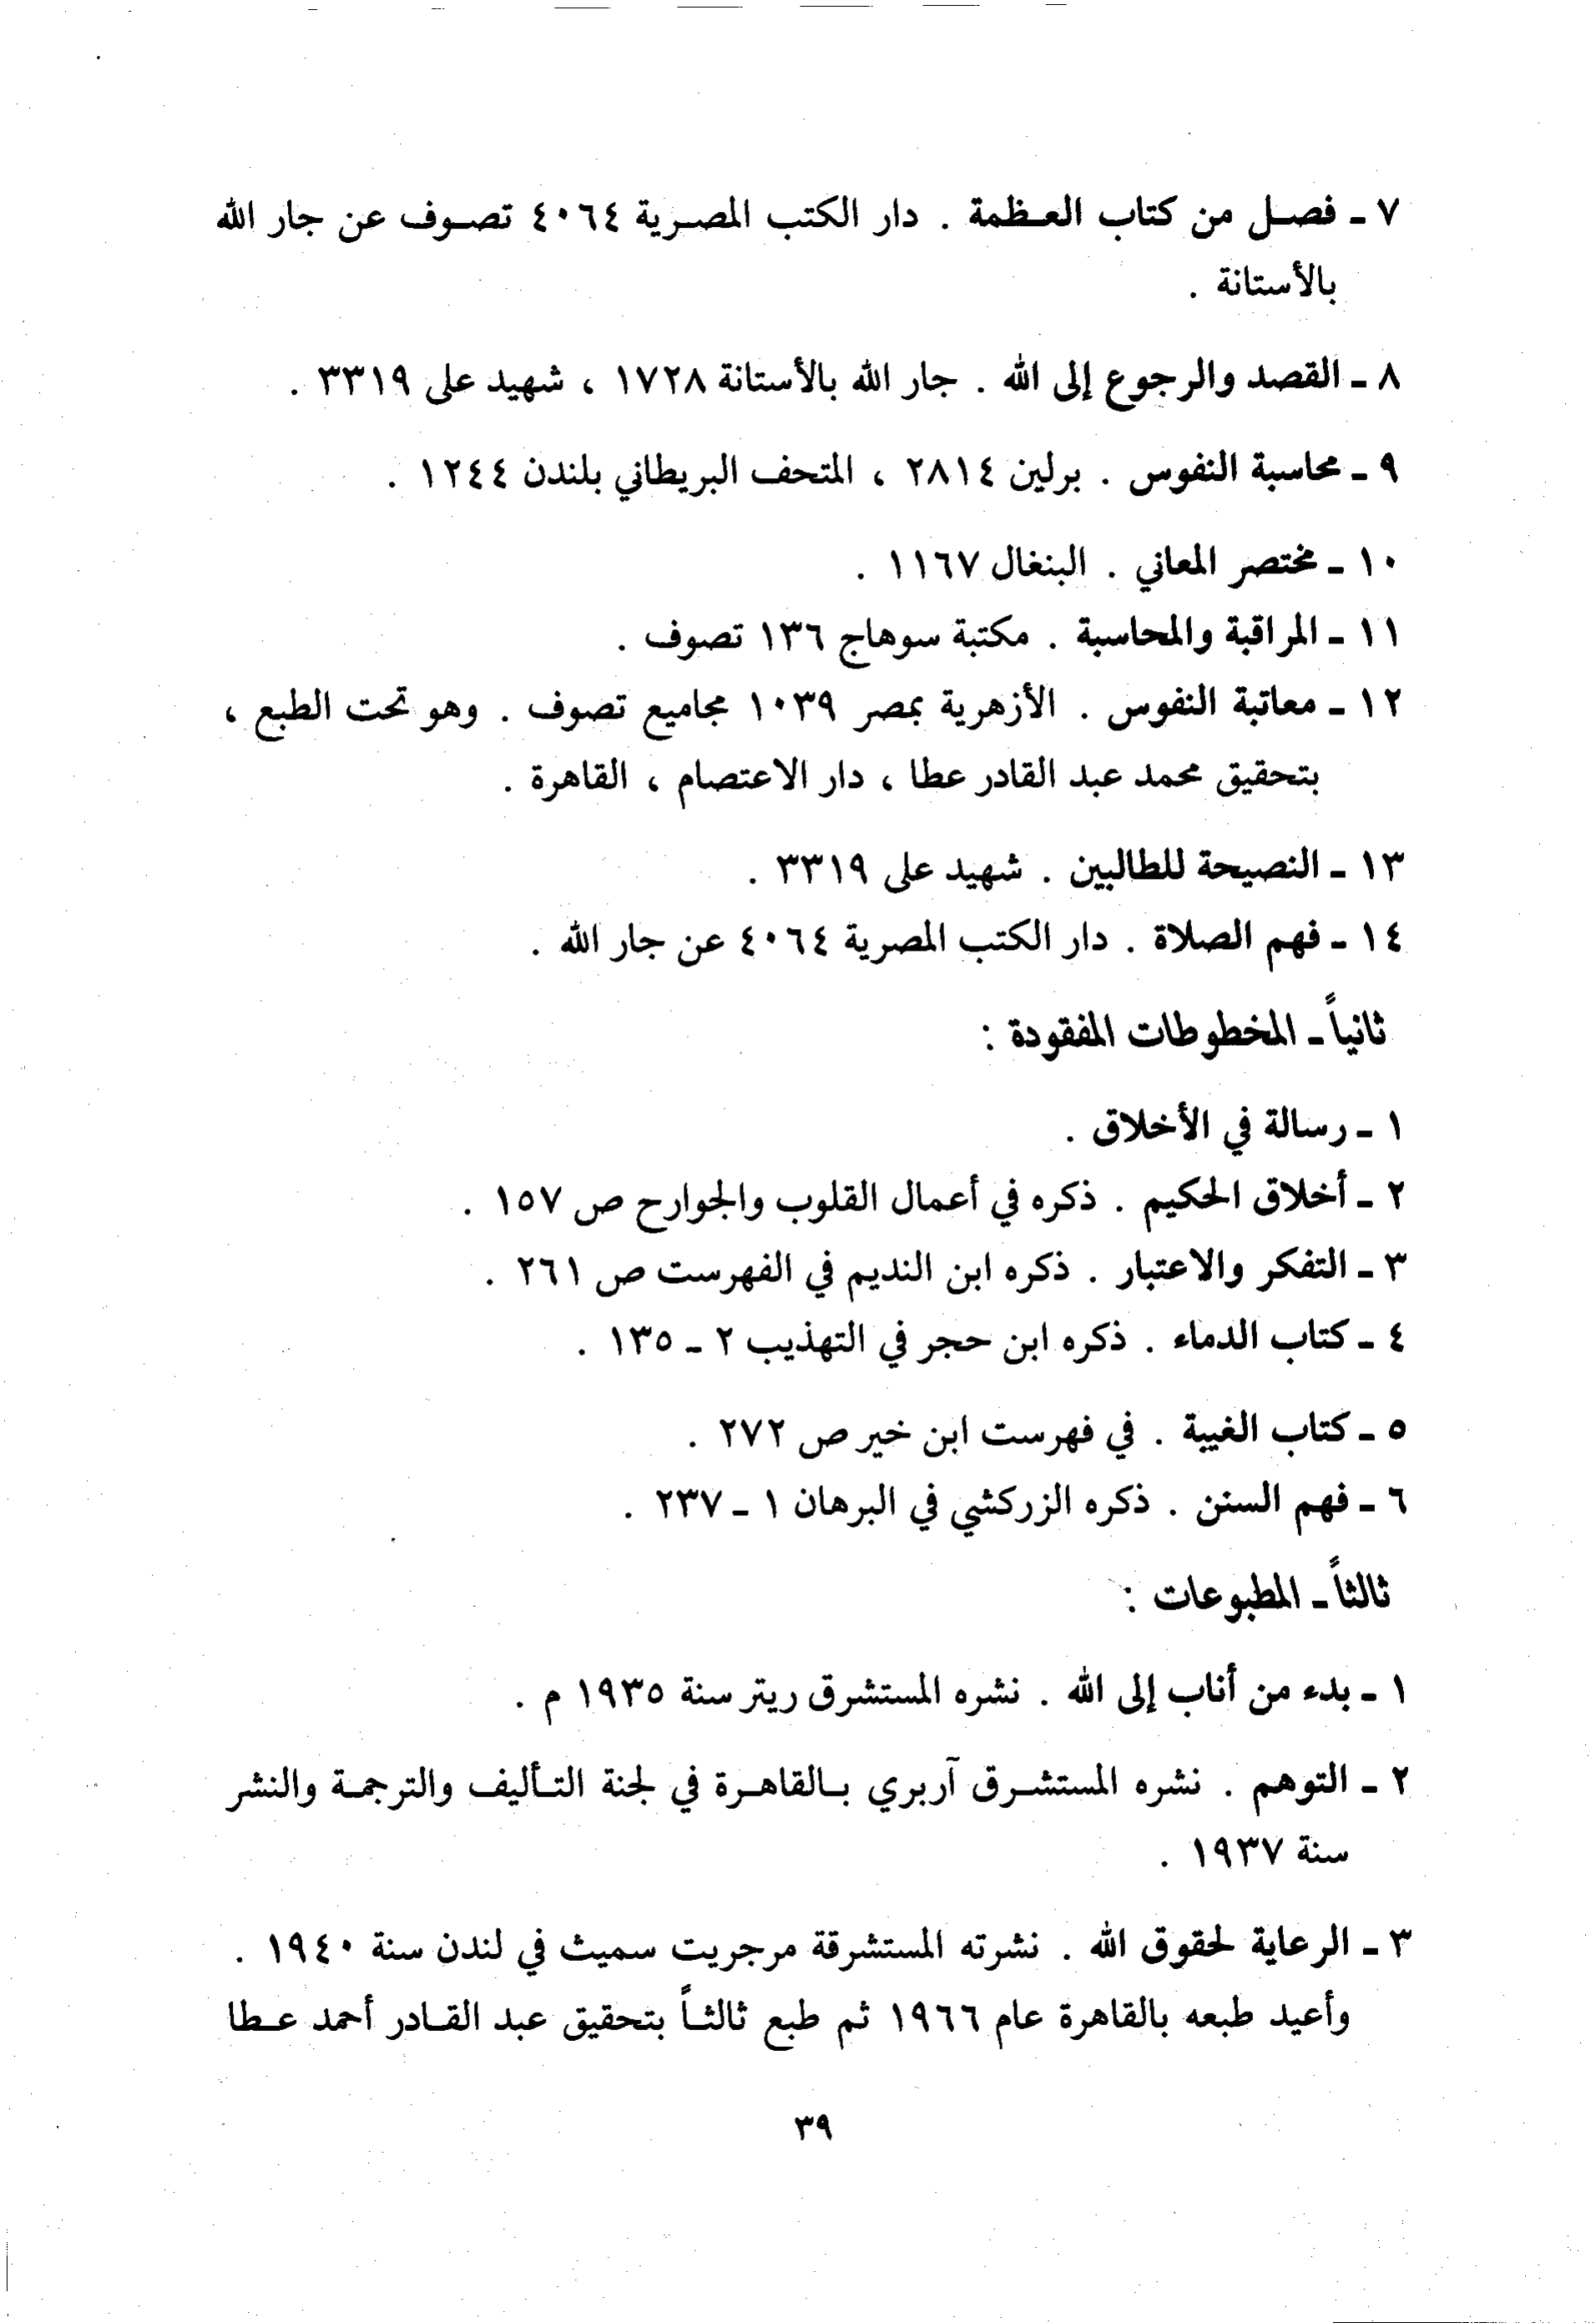 ٧ - فصل من كتاب العظمة . دار الكتب المصرية ٤٠٦٤ تصوف عن جار الله
بالأستانة .
٨ - القصد والرجوع إلى الله . جار الله بالأستانة ١٧٢٨ ، شهيد على ٣٣١٩ .
٩ - محاسبة النفوس . برلين ٢٨١٤ ، المتحف البريطاني بلندن ١٢٤٤ .
١٠ - مختصر المعاني . البنغال ١١٦٧ .
١١ - المراقبة والمحاسبة . مكتبة سوهاج ١٣٦ تصوف .
١٢ - معاتبة النفوس . الأزهرية بمصر ١٠٣٩ مجاميع تصوف . وهو تحت الطبع ،
بتحقيق محمد عبد القادر عطا ، دار الاعتصام ، القاهرة .
١٣ - النصيحة للطالبين . شهيد على ٣٣١٩ .
١٤ - فهم الصلاة . دار الكتب المصرية ٤٠٦٤ عن جار الله .
ثانياً - المخطوطات المفقودة :
١ - رسالة في الأخلاق .
٢ - أخلاق الحكيم . ذكره في أعمال القلوب والجوارح ص ١٥٧ .
٣ - التفكر والاعتبار . ذكره ابن النديم في الفهرست ص ٢٦١ .
٤ - كتاب الدماء . ذكره ابن حجر في التهذيب ٢ - ١٣٥ .
٥ - كتاب الغيبة . في فهرست ابن خير ص ٢٧٢ .
٦ - فهم السنن . ذكره الزركشي في البرهان ١ - ٢٣٧ .
ثالثاً - المطبوعات :
١ - بدء من أناب إلى الله . نشره المستشرق ريتر سنة ١٩٣٥ م .
٢ - التوهم . نشره المستشرق آربري بالقاهرة في لجنة التأليف والترجمة والنشر
سنة ١٩٣٧ .
٣ - الرعاية لحقوق الله . نشرته المستشرقة مرجريت سميث في لندن سنة ١٩٤٠ .
وأعيد طبعه بالقاهرة عام ١٩٦٦ ثم طبع ثالثاً بتحقيق عبد القادر أحمد عطا
٣٩